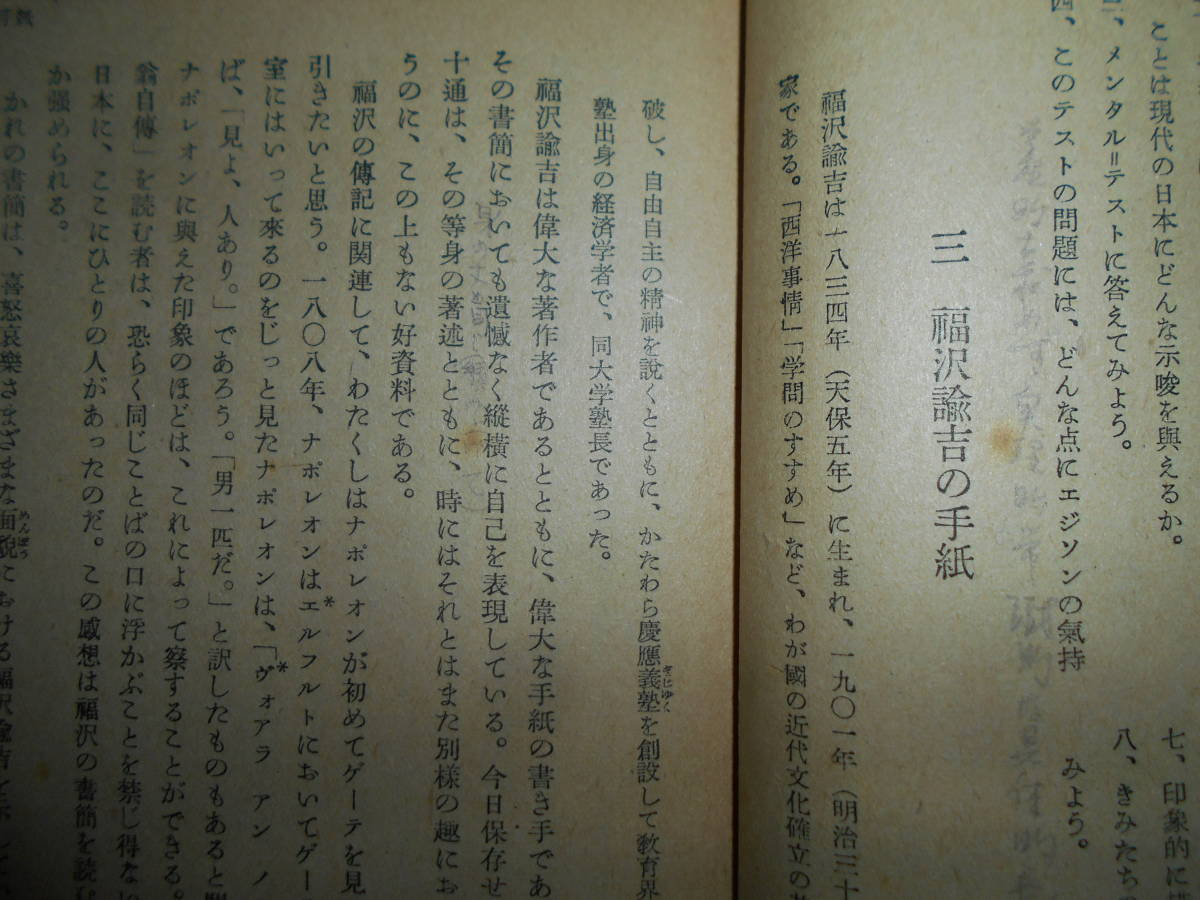 ことは現代の日本にどんな示唆を與えるか。
メンタル＝テストに答えてみよう。
四、このテストの問題には、どんな点にエジソンの氣持
七、印象的に
八、きみたち
みよう。
三 福沢諭吉の手紙
福沢諭吉は一八三四年（天保五年）に生まれ、一九〇一年（明治三十
家である。「西洋事情」「学問のすすめ」など、わが國の近代文化確立の
破し、自由自主の精神を說くとともに、かたわら慶應義塾を創設して敎育界
ぎじゆく
塾出身の経済学者で、同大学塾長であった。
福沢諭吉は偉大な著作者であるとともに、偉大な手紙の書き手であ
その書簡においても遺憾なく縱橫に自己を表現している。今日保存せ
十通は、その等身の著述とともに、時にはそれとはまた別様の趣にお
うのに、この上もない好資料である。
福沢の傳記に関連して、わたくしはナポレオンが初めてゲーテを見
引きたいと思う。一八〇八年、ナポレオンは＊エルフルトにおいてゲー
室にはいって来るのをじっと見たナポレオンは、「＊ヴォアラ アン ノ
ば、「見よ、人あり。」であろう。「男一匹だ。」と訳したものもあると
ナポレオンに與えた印象のほどは、これによって察することができる。
翁自傳」を読む者は、恐らく同じことばの口に浮かぶことを禁じ得な
日本に、ここにひとりの人があったのだ。この感想は福沢の書簡を読
か强められる。
かれの書簡は、喜怒哀樂さまざまな面貌における福沢諭吉を
めんぼう